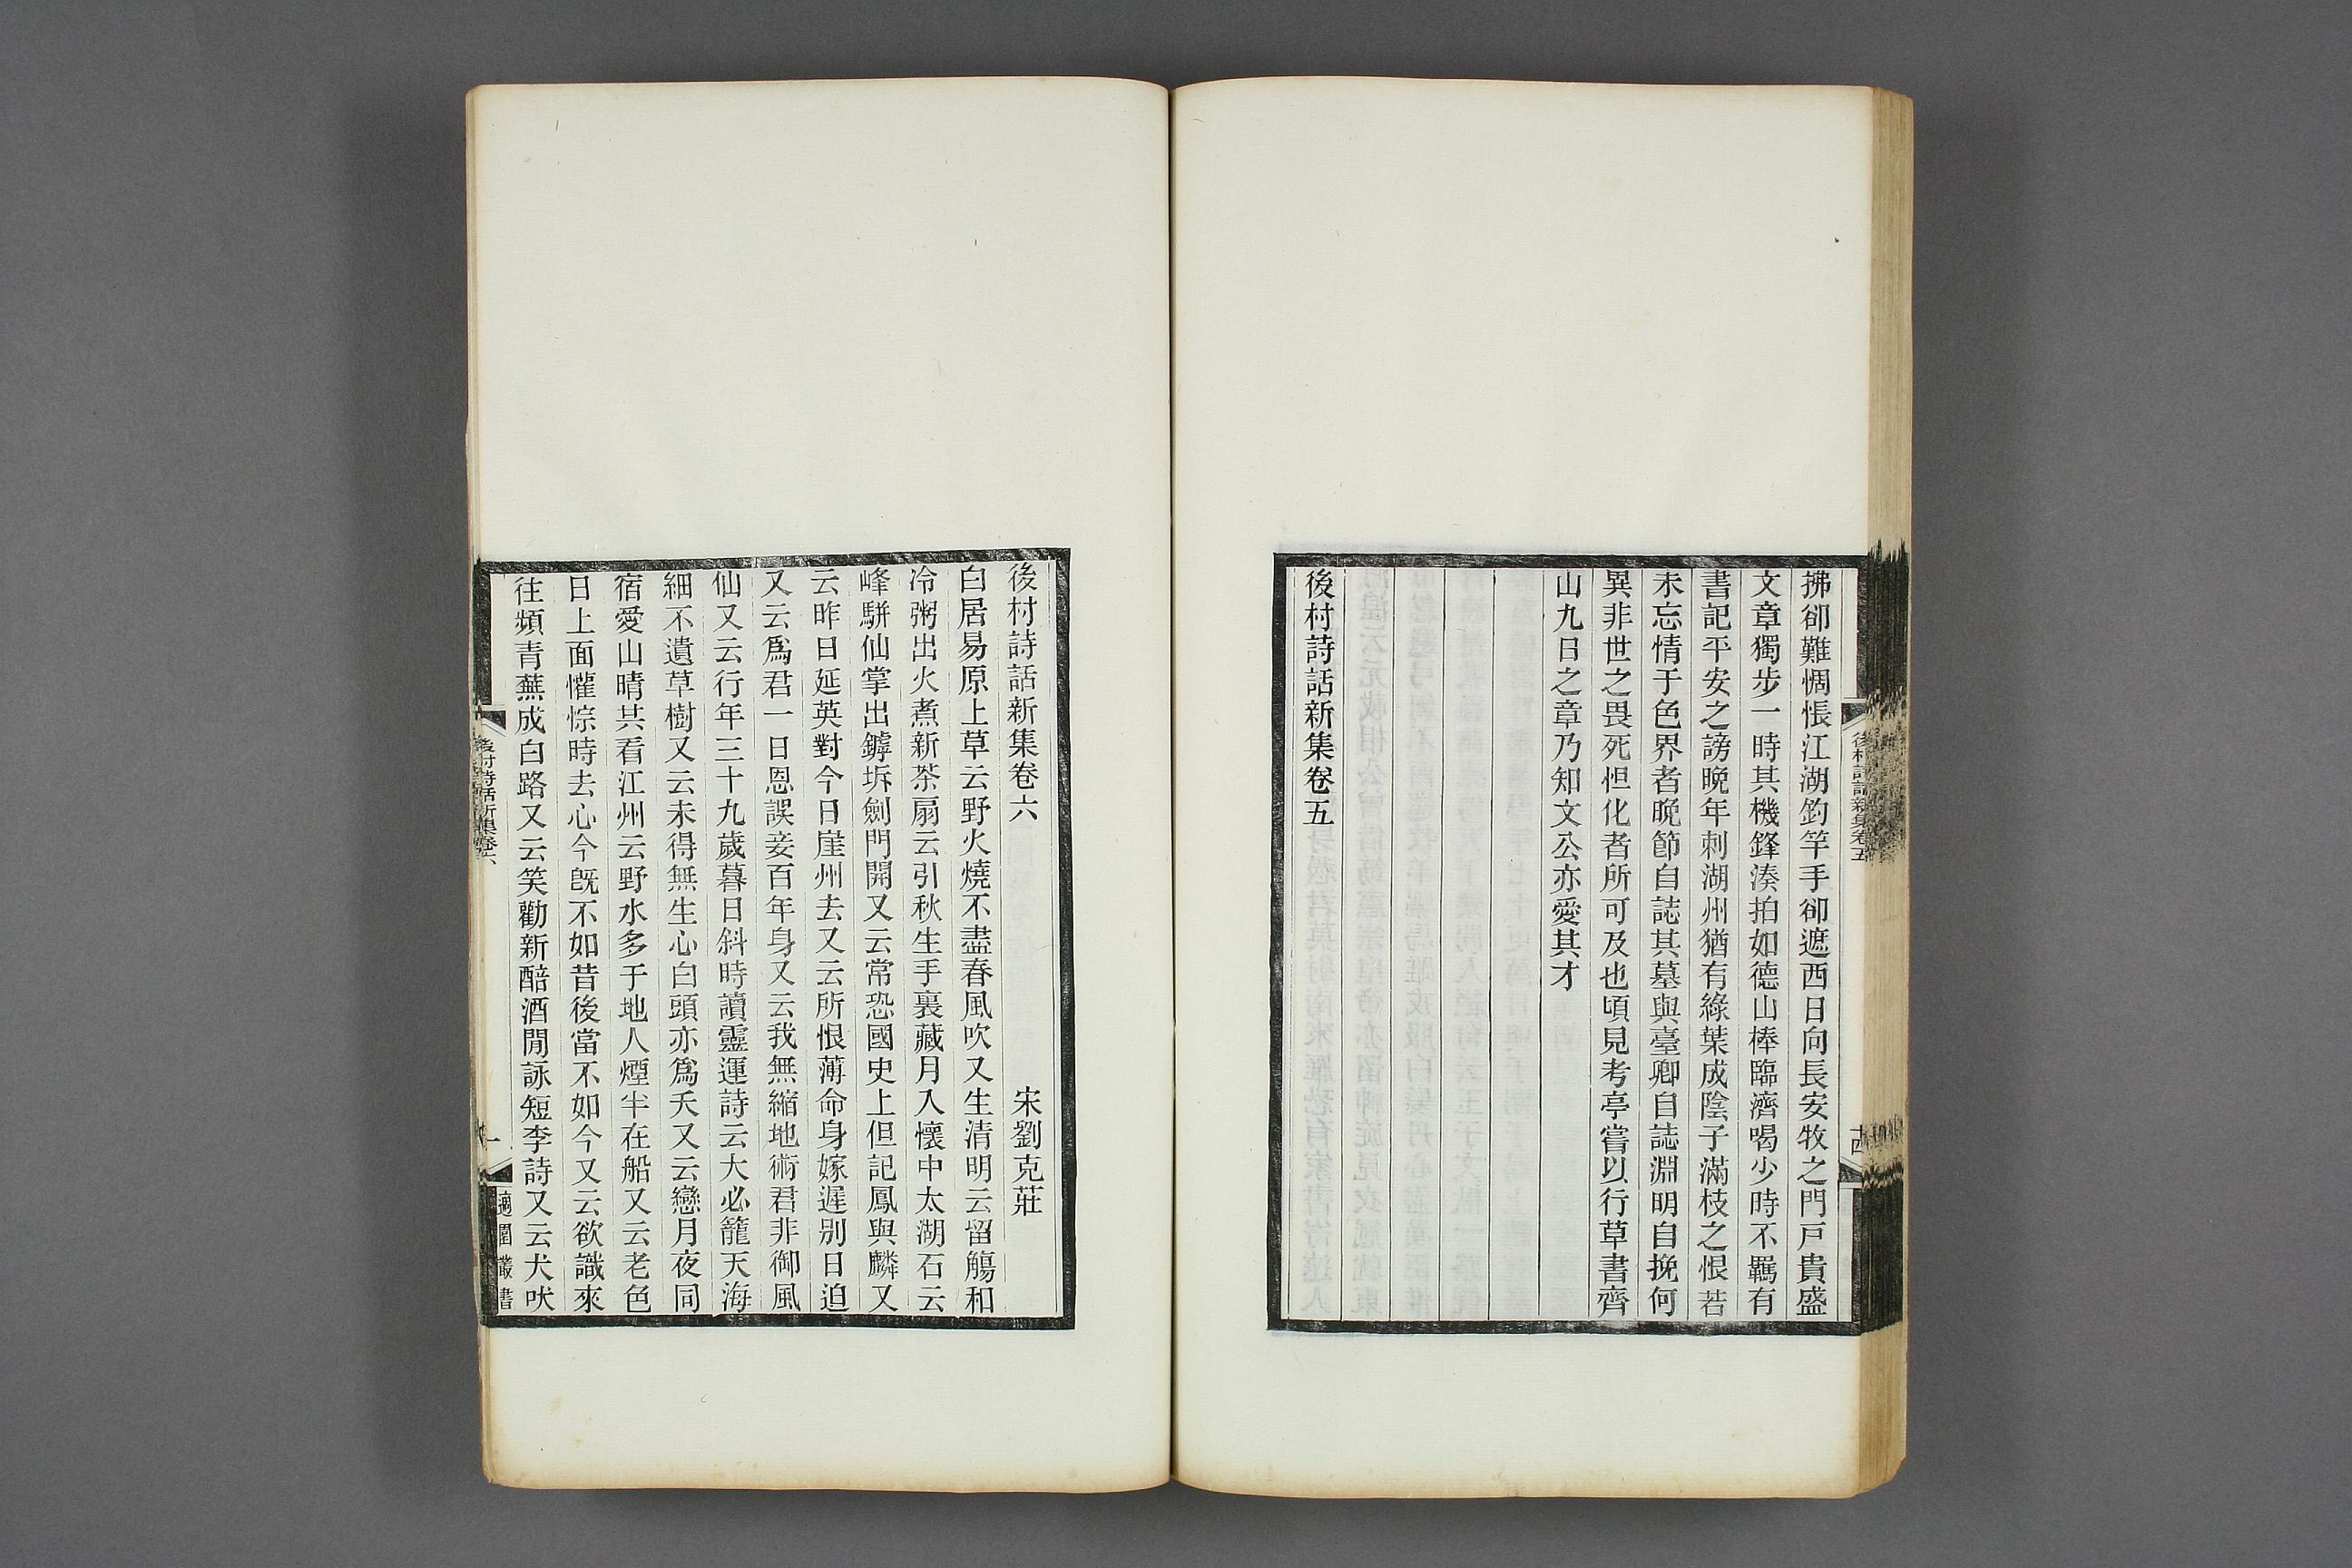 拂卻難惆悵江湖釣竿手卻遮西日向長安牧之門戶貴盛
文章獨步一時其機鋒湊拍如德山棒臨濟喝少時不羈有
書記平安之謗晚年刺湖州猶有綠葉成陰子滿枝之恨若
未忘情于色界者晚節自誌其墓與臺卿自誌淵明自挽何
異非世之畏死怛化者所可及也頃見考亭嘗以行草書齊
山九日之章乃知文公亦愛其才
後村詩話新集卷五
後村詩話新集卷五
十四
後村詩話新集卷六
宋劉克莊
白居易原上草云野火燒不盡春風吹又生清明云留觴和
冷粥出火煮新茶扇云引秋生手裏藏月入懷中太湖石云
峰駢仙掌出罅坼劍門開又云常恐國史上但記鳳與麟又
云昨日延英對今日崖州去又云所恨薄命身嫁遲別日迫
又云爲君一日恩誤妾百年身又云我無縮地術君非御風
仙又云行年三十九歲暮日斜時讀靈運詩云大必籠天海
細不遺草樹又云未得無生心白頭亦爲夭又云戀月夜同
宿愛山晴共看江州云野水多于地人煙半在船又云老色
日上面懽悰時去心今既不如昔後當不如今又云欲識來
往頻青蕪成白路又云笑勸新醅酒閒詠短李詩又云犬吠
後村詩話新集卷六
一
適園叢書